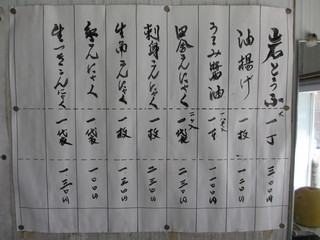 岩とうふ 大 一丁 三〇〇円
油揚げ 一枚
うまみ醤油 一本
田舎こんにゃく 二ケ入 一袋 二五〇円
刺身こんにゃく 一枚 二三〇円
生角こんにゃく 一枚 一三〇円
こんにゃく 一袋 一〇〇円
こんにゃく 一袋 一三〇円